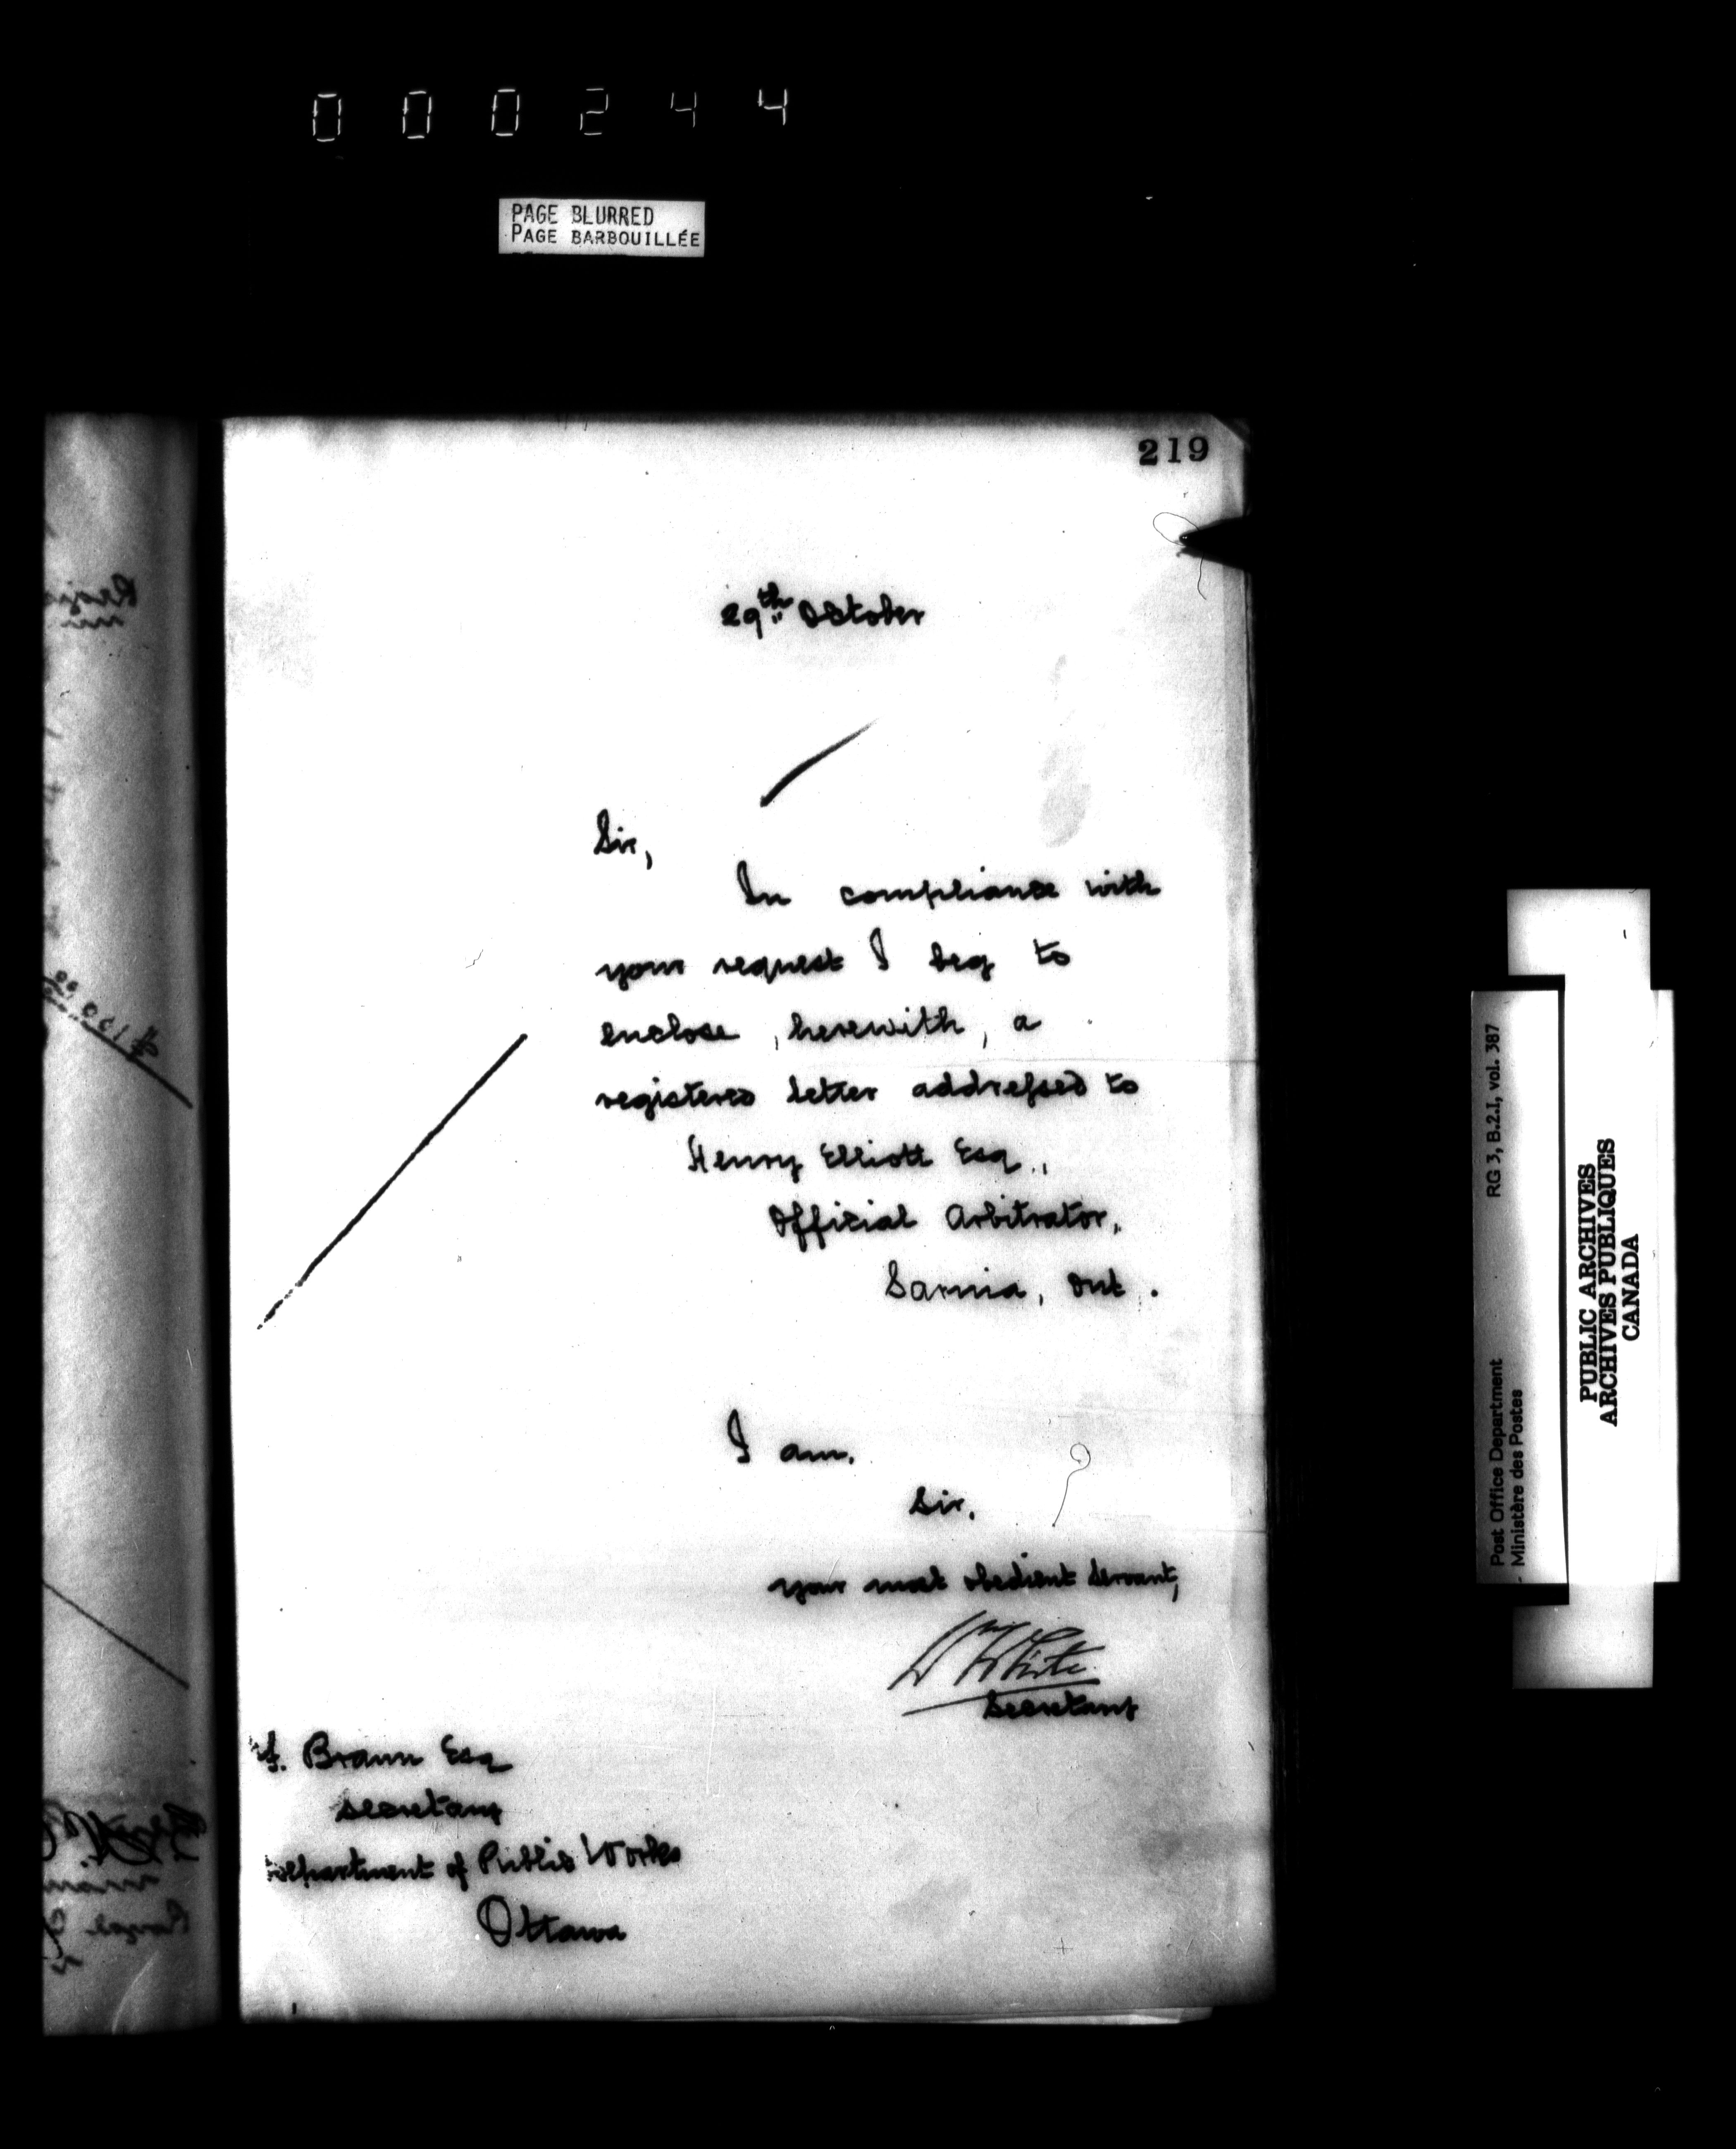 000244
PAGE BLURRED
PAGE BARBOUILLÉE
219
29th October
Sir,
In compliance with
your request I beg to
enclose, herewith, a
registered letter addressed to
Henry Elliott Esq.,
Official Arbitrator,
Sarnia, Ont.
I am,
Sir,
your most obedient servant,
Wm White
Secretary
F. Braun Esq
Secretary
Department of Public Works
Ottawa
$100.00
RG 3, B.2.1, vol. 387
Post Office Department
Ministère des Postes
PUBLIC ARCHIVES
ARCHIVES PUBLIQUES
CANADA